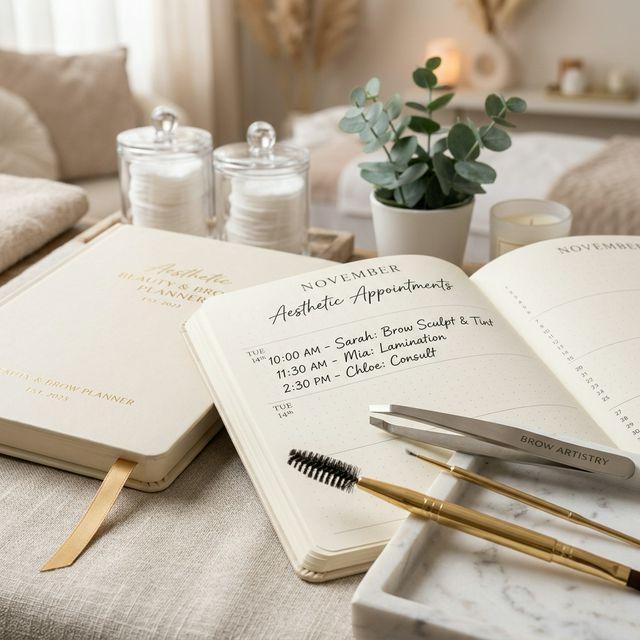 Aesthetic
BEAUTY & BROW
PLANNER
EST. 2023
& BROW PLANNER
EST. 2023
NOVEMBER
Aesthetic Appointments
TUE
14th
10:00 AM – Sarah: Brow Sculpt & Tint
11:30 AM – Mia: Lamination
2:30 PM – Chloe: Consult
TUE
14th
NOVEMBER
BROW ARTISTRY